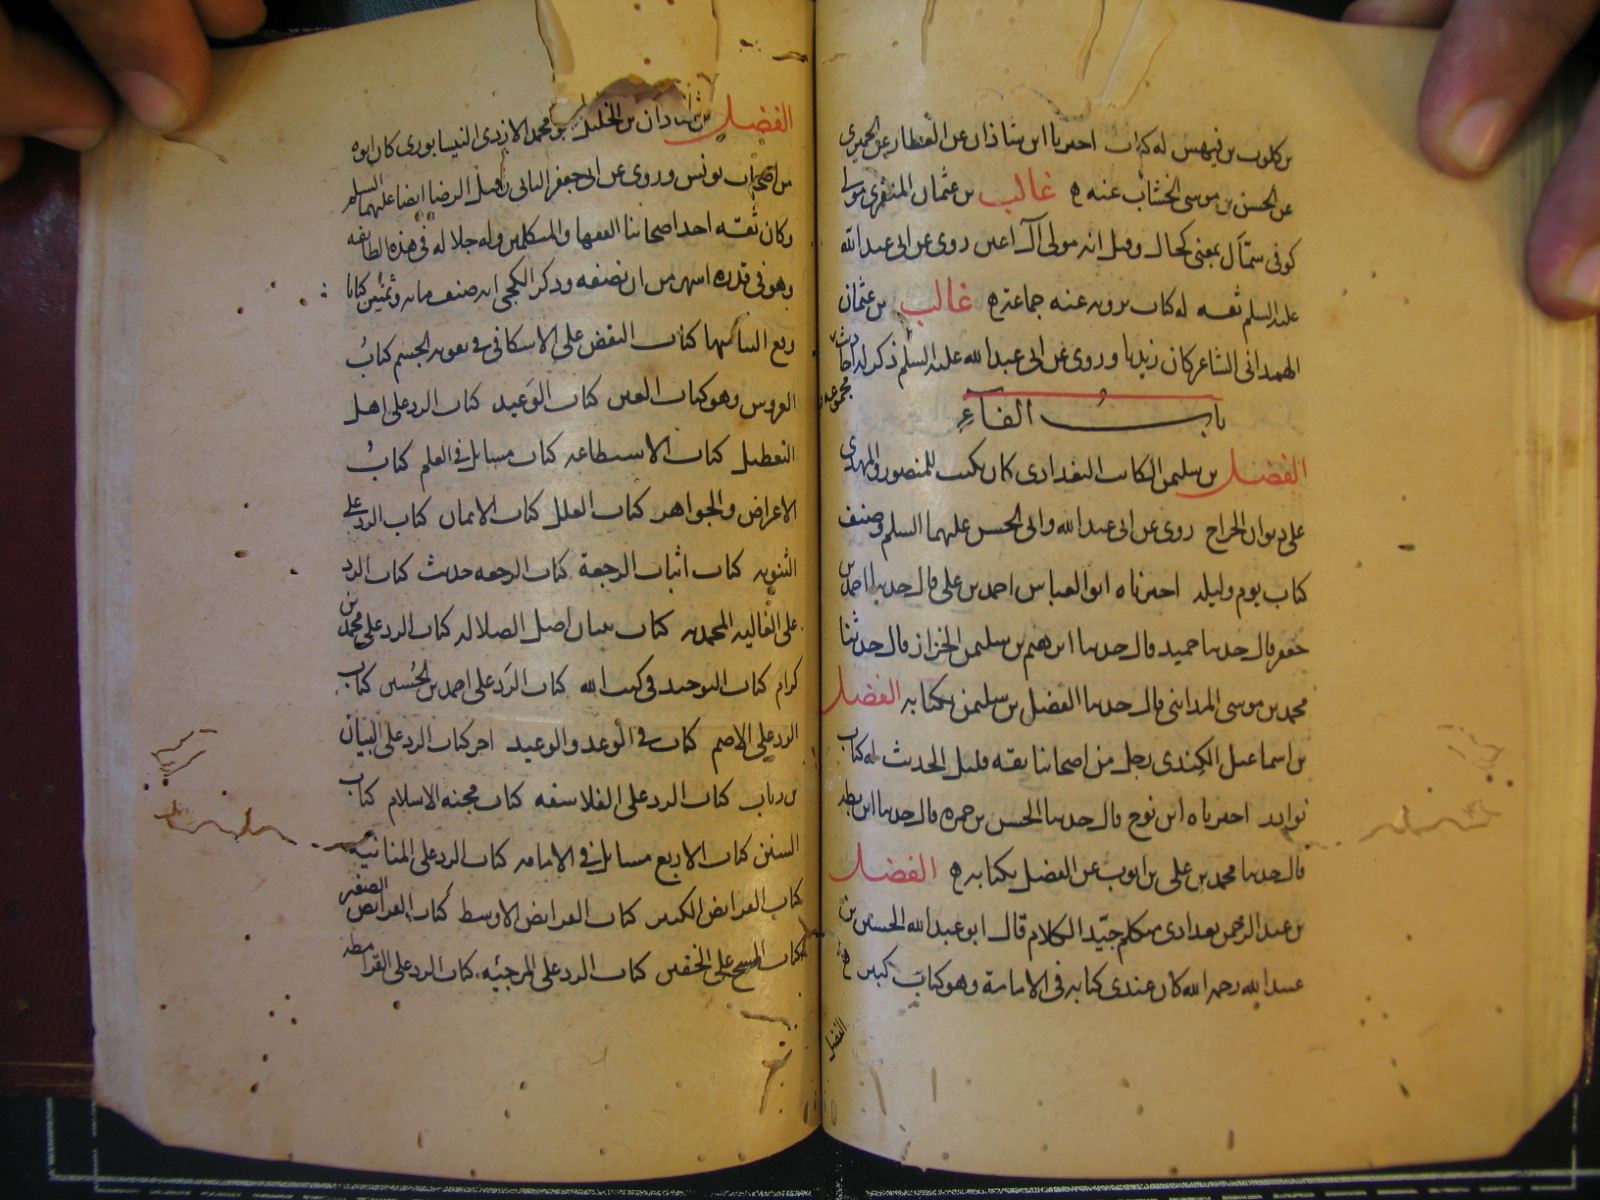 بن كلوب بن فيهس له كتاب اخبرنا ابن شاذان عن العطار عن الحميرى
عن الحسن بن موسى الخشاب عنه ه غالب بن عثمان المنقرى مولى
كوفى سمال بمعنى كحال وقيل انه مولى آل اعين روى عن ابى عبد الله
عليه السلم ثقه له كتاب يرويه عنه جماعة ه غالب بن عثمان
الهمدانى الشاعر كان زيديا وروى عن ابى عبد الله عليه السلم ذكر له احاديث
مجموعة
باب الفاء
الفضل بن سليمن الكاتب البغدادى كان يكتب للمنصور والمهدى
على ديوان الخراج روى عن ابى عبد الله وابى الحسن عليهما السلم وصنف
كتاب يوم وليلة اخبرناه ابو العباس احمد بن على قال حدثنا احمد بن
جعفر قال حدثنا حميد قال حدثنا ابرهيم بن سليمن الخزاز قال حدثنا
محمد بن موسى المداينى قال حدثنا الفضل بن سليمن بكتابه الفضل
بن اسماعيل الكندى رجل من اصحابنا ثقه قليل الحديث له كتاب
نوادر اخبرناه ابن نوح قال حدثنا الحسن بن حمزه قال حدثنا ابن بطه
قال حدثنا محمد بن على بن ايوب عن الفضل بكتابه ه الفضل
بن عبد الرحمن بغدادى متكلم جيّد الكلام قال ابو عبد الله الحسين بن
عبيد الله رحمه الله كان عندى كتابه فى الامامة وهو كتاب كبير
الفضل
الفضل بن شاذان بن الخليل بو محمد الازدى النيسابورى كان ابوه
من اصحاب يونس وروى عن ابى جعفر الثانى وقيل الرضا ايضا عليهما السلم
وكان ثقه احد اصحابنا الفقها والمتكلمين وله جلاله فى هذه الطايفه
وهو فى قدره اشهر من ان نصفه وذكر الكجى انه صنف مايه وثمنين كتابا
وقع الينا منها كتاب النقض على الاسكافى فى تقويه الجسم كتاب
العروس وهو كتاب العين كتاب الوعيد كتاب الرد على اهل
التعطيل كتاب الاستطاعه كتاب مسايل فى العلم كتاب
الاعراض والجواهر كتاب العلل كتاب الايمان كتاب الرد على
الثنويه كتاب اثبات الرجعة كتاب الرجعه حديث كتاب الرد
على الغاليه المحمديه كتاب تبيان اصل الضلاله كتاب الرد على محمد بن
كرام كتاب التوحيد فى كتب الله كتاب الرد على احمد بن الحسين كتاب
الرد على الاصم كتاب فى الوعد والوعيد اخر كتاب الرد على البيان
بن رباب كتاب الرد على الفلاسفه كتاب محنه الاسلام كتاب
السنن كتاب الاربع مسايل فى الامامه كتاب الرد على المنانية
كتاب الفرايض الكبير كتاب الفرايض الاوسط كتاب الفرايض الصغير
كتاب المسح على الخفين كتاب الرد على المرجئه كتاب الرد على القرامطه